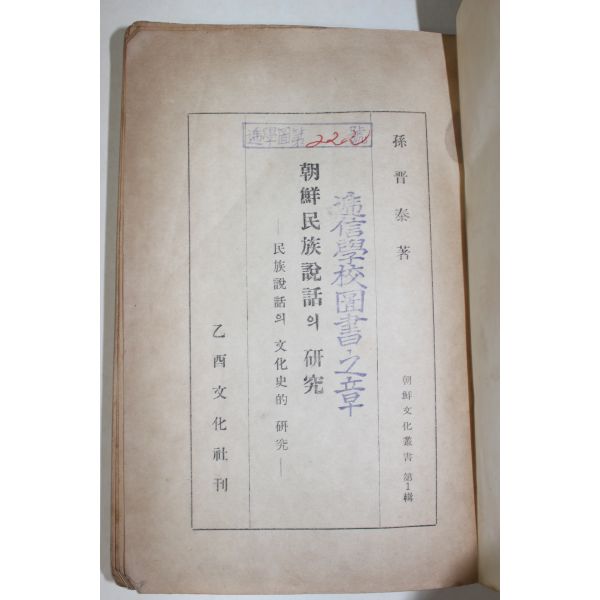 孫晋泰著
朝鮮文化叢書 第1輯
遞信學校圖書之章
遞學圖第 222 號
朝鮮民族說話의 硏究
—民族說話의 文化史的 硏究—
乙酉文化社刊